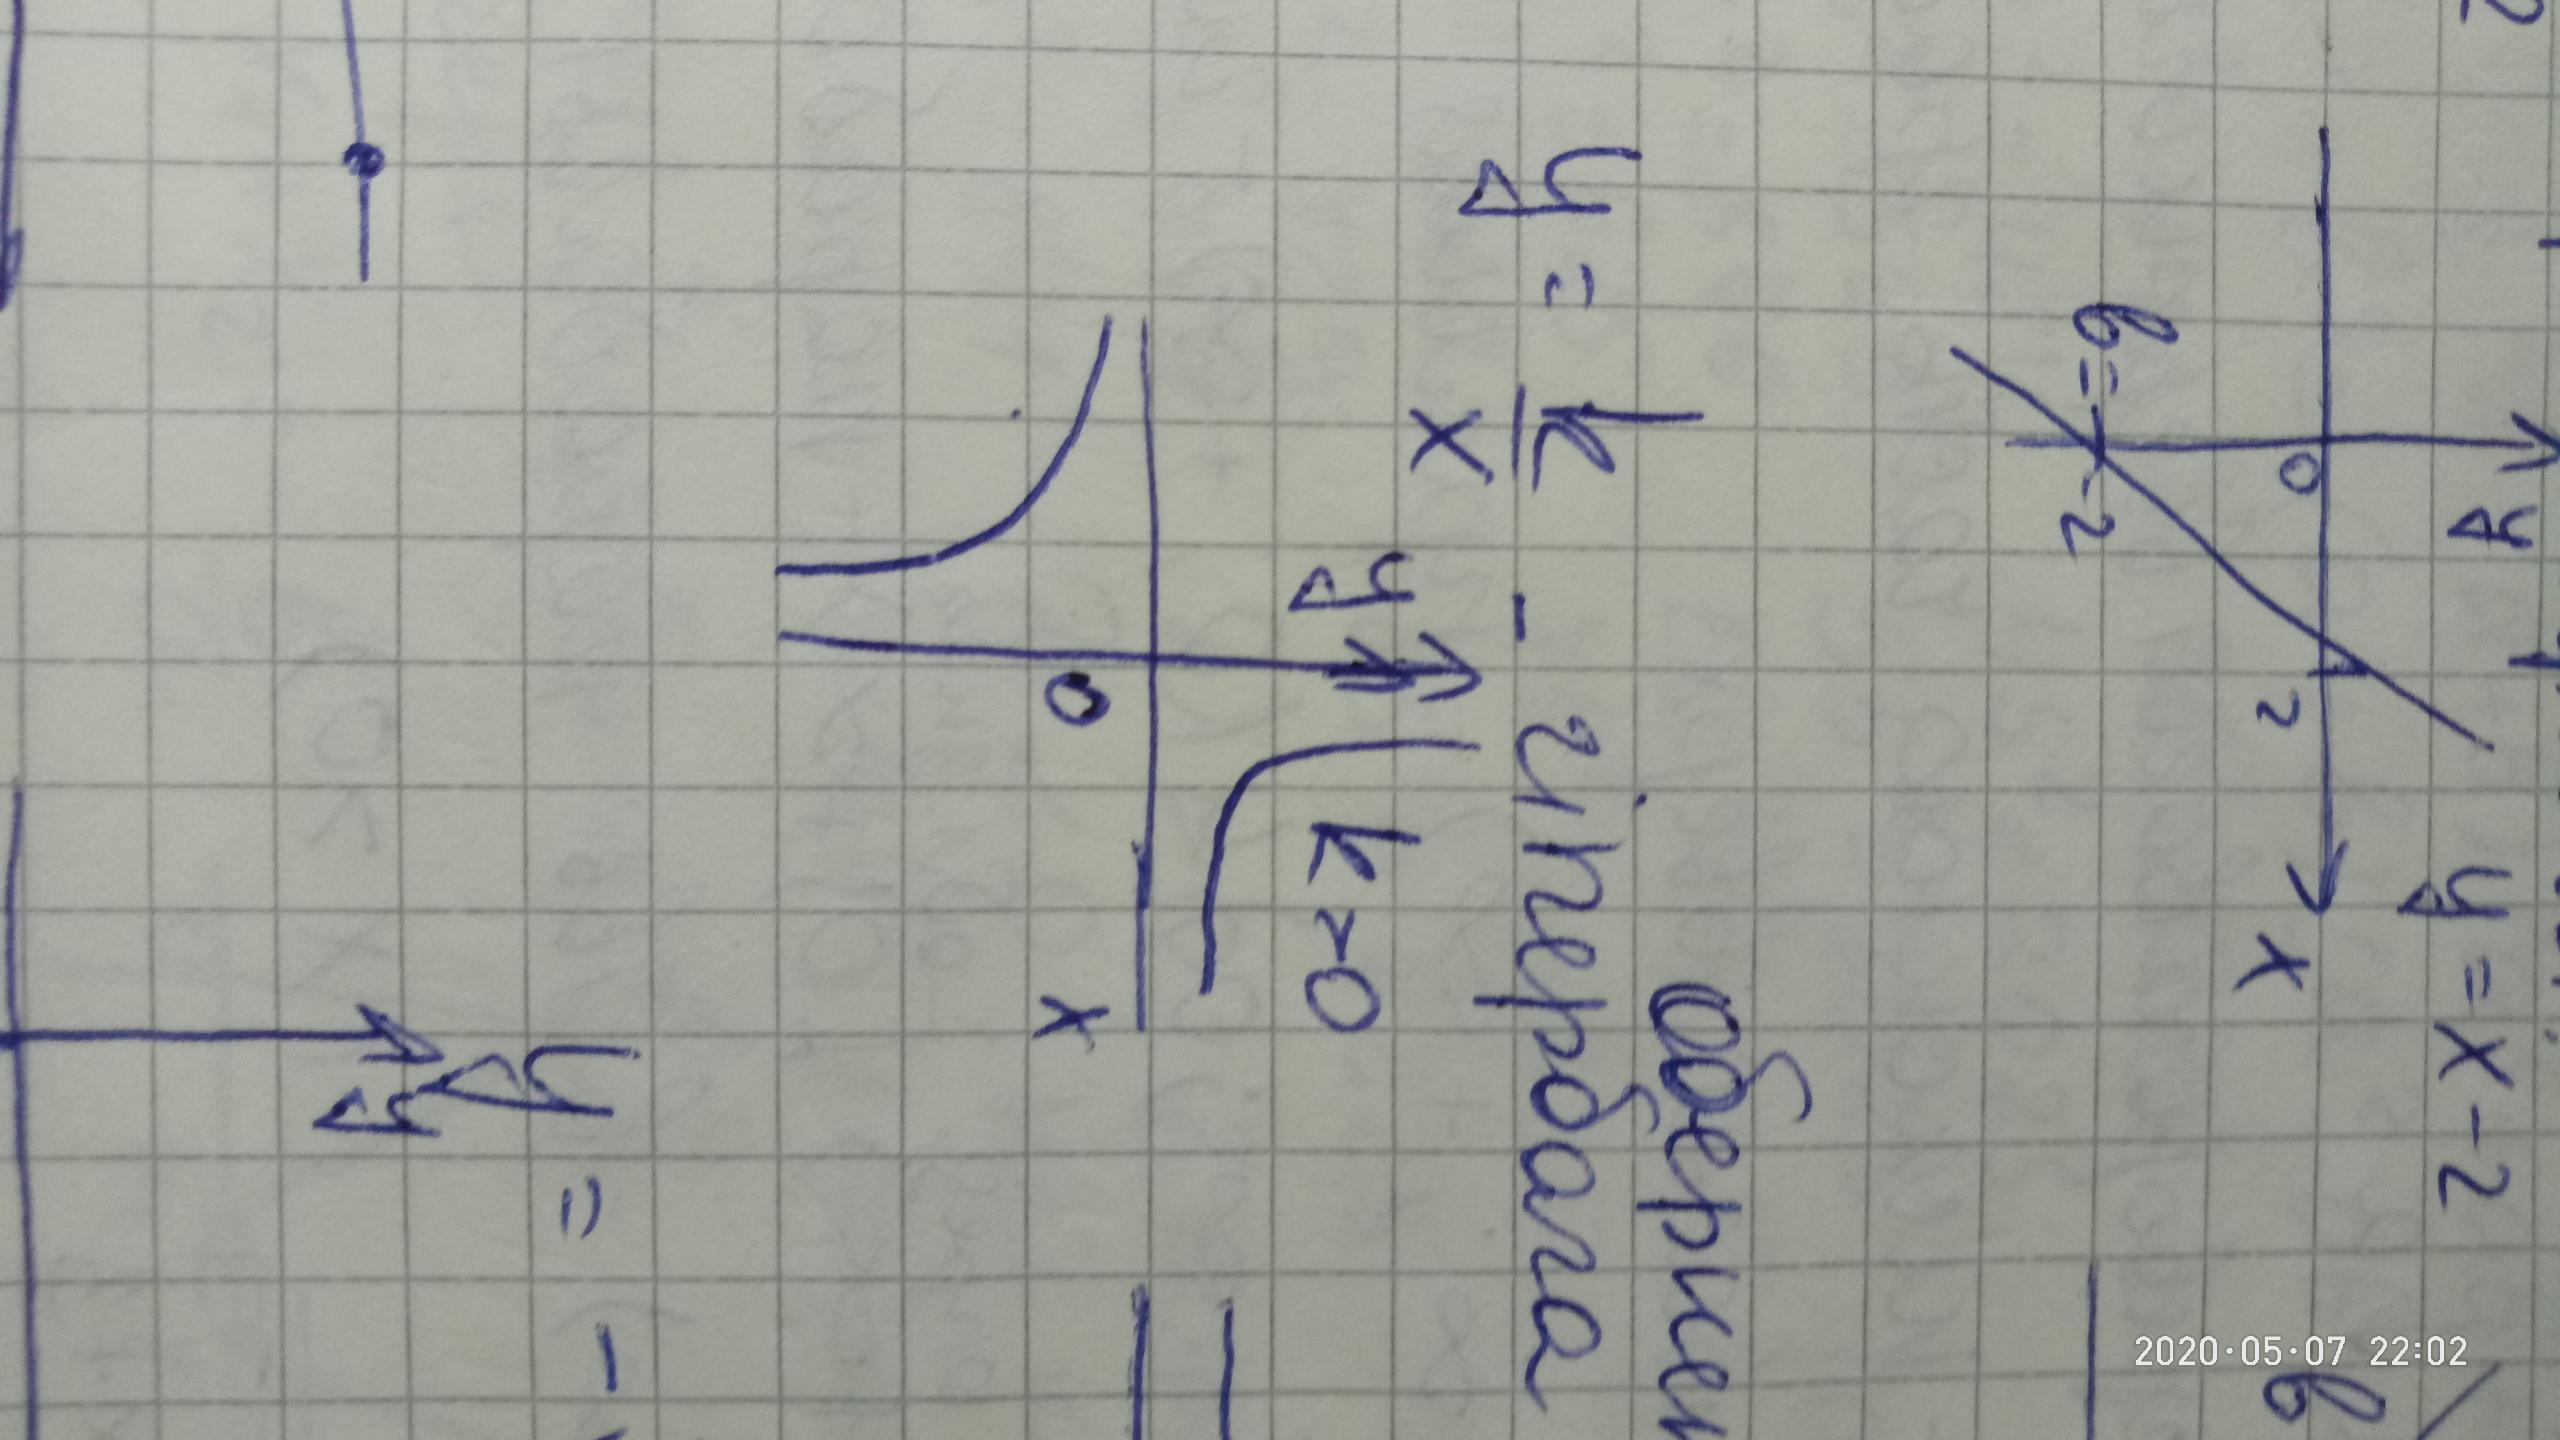 y = x - 2
y
x
0
2
b = -2
оберне
y = k/x - гіпербола
y
k>0
0
x
y = -
y
2020·05·07 22:02